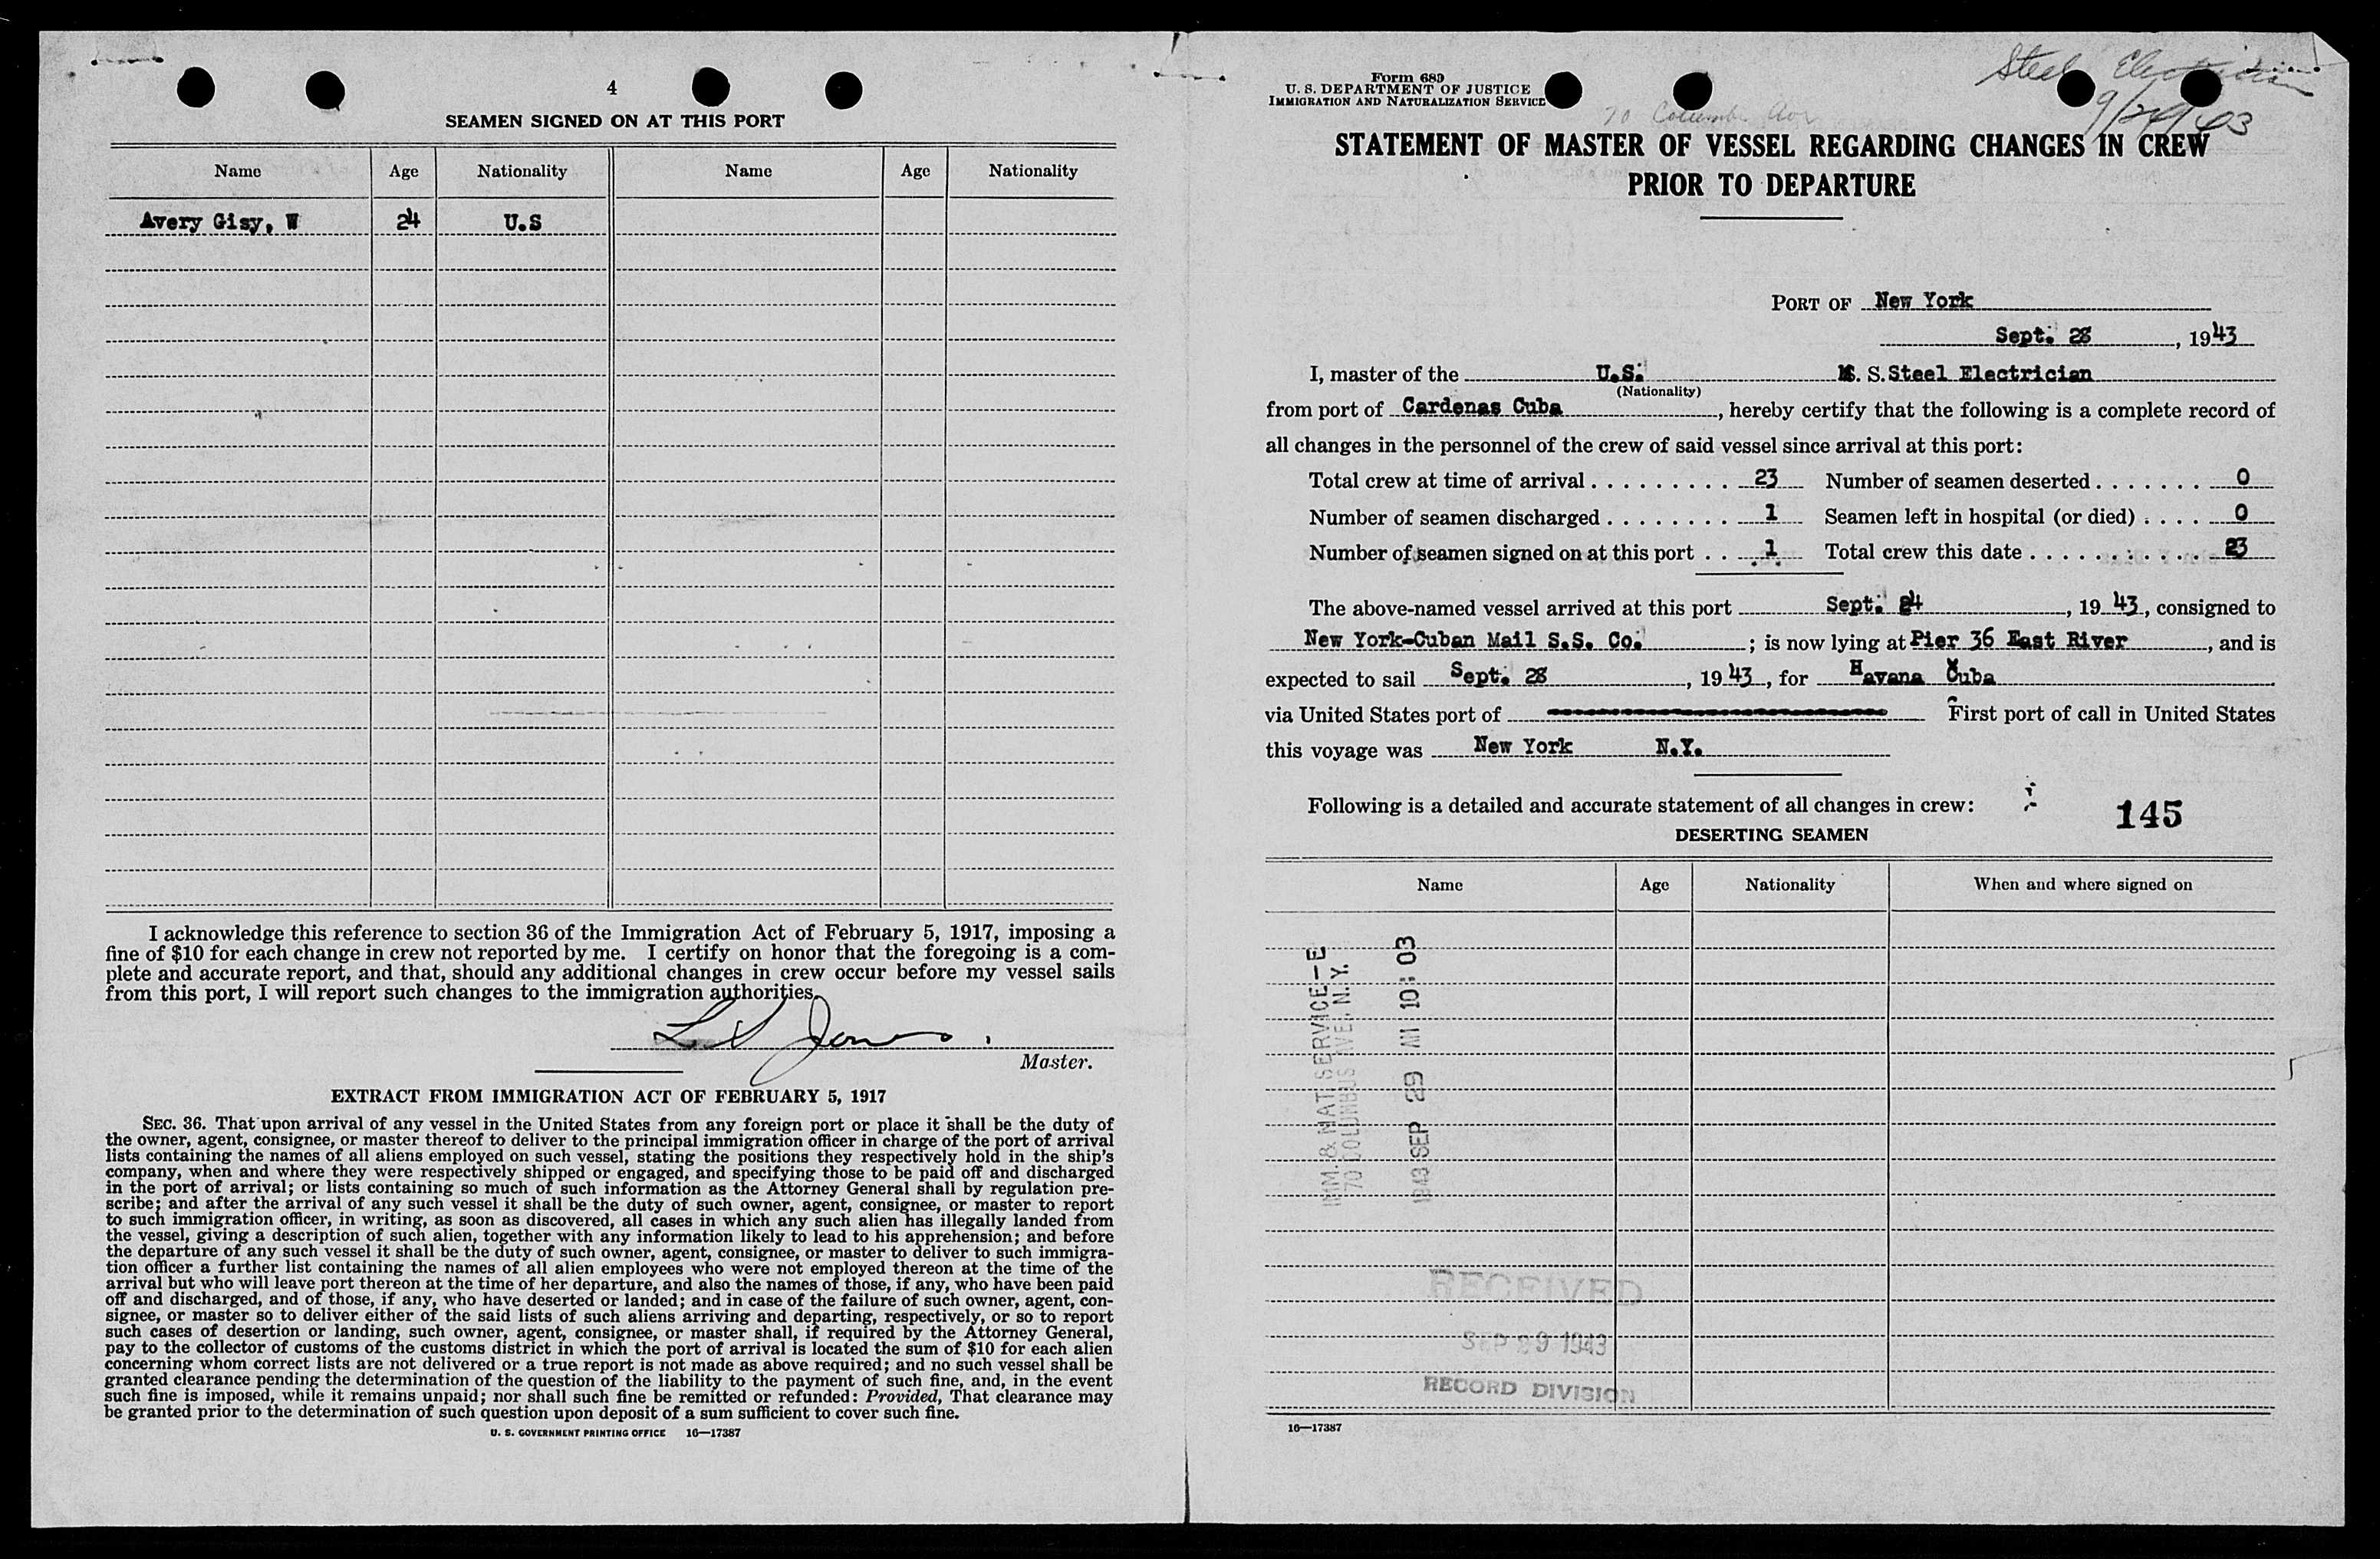 4
SEAMEN SIGNED ON AT THIS PORT
Name Age Nationality Name Age Nationality
Avery Gisy, W 24 U.S
I acknowledge this reference to section 36 of the Immigration Act of February 5, 1917, imposing a
fine of $10 for each change in crew not reported by me. I certify on honor that the foregoing is a com-
plete and accurate report, and that, should any additional changes in crew occur before my vessel sails
from this port, I will report such changes to the immigration authorities.
Jones
Master.
EXTRACT FROM IMMIGRATION ACT OF FEBRUARY 5, 1917
SEC. 36. That upon arrival of any vessel in the United States from any foreign port or place it shall be the duty of
the owner, agent, consignee, or master thereof to deliver to the principal immigration officer in charge of the port of arrival
lists containing the names of all aliens employed on such vessel, stating the positions they respectively hold in the ship's
company, when and where they were respectively shipped or engaged, and specifying those to be paid off and discharged
in the port of arrival; or lists containing so much of such information as the Attorney General shall by regulation pre-
scribe; and after the arrival of any such vessel it shall be the duty of such owner, agent, consignee, or master to report
to such immigration officer, in writing, as soon as discovered, all cases in which any such alien has illegally landed from
the vessel, giving a description of such alien, together with any information likely to lead to his apprehension; and before
the departure of any such vessel it shall be the duty of such owner, agent, consignee, or master to deliver to such immigra-
tion officer a further list containing the names of all alien employees who were not employed thereon at the time of the
arrival but who will leave port thereon at the time of her departure, and also the names of those, if any, who have been paid
off and discharged, and of those, if any, who have deserted or landed; and in case of the failure of such owner, agent, con-
signee, or master so to deliver either of the said lists of such aliens arriving and departing, respectively, or so to report
such cases of desertion or landing, such owner, agent, consignee, or master shall, if required by the Attorney General,
pay to the collector of customs of the customs district in which the port of arrival is located the sum of $10 for each alien
concerning whom correct lists are not delivered or a true report is not made as above required; and no such vessel shall be
granted clearance pending the determination of the question of the liability to the payment of such fine, and, in the event
such fine is imposed, while it remains unpaid; nor shall such fine be remitted or refunded: Provided, That clearance may
be granted prior to the determination of such question upon deposit of a sum sufficient to cover such fine.
U. S. GOVERNMENT PRINTING OFFICE 16—17387
Form 689
U. S. DEPARTMENT OF JUSTICE
IMMIGRATION AND NATURALIZATION SERVICE
Steel Electrician
70 Columb Ave
STATEMENT OF MASTER OF VESSEL REGARDING CHANGES IN CREW
PRIOR TO DEPARTURE
PORT OF New York
Sept. 28, 1943
I, master of the U.S. S. S. Steel Electrician
(Nationality)
from port of Cardenas Cuba, hereby certify that the following is a complete record of
all changes in the personnel of the crew of said vessel since arrival at this port:
Total crew at time of arrival 23 Number of seamen deserted 0
Number of seamen discharged 1 Seamen left in hospital (or died) 0
Number of seamen signed on at this port 1 Total crew this date 23
The above-named vessel arrived at this port Sept. 24, 1943, consigned to
New York-Cuban Mail S.S. Co.; is now lying at Pier 36 East River, and is
expected to sail Sept. 28, 1943, for Havana Cuba
via United States port of First port of call in United States
this voyage was New York N.Y.
Following is a detailed and accurate statement of all changes in crew:
145
DESERTING SEAMEN
Name Age Nationality When and where signed on
IMM. & NAT. SERVICE-E
70 COLUMBUS AVE. N.Y.
1943 SEP 29 AM 10:03
RECEIVED
SEP 29 1943
RECORD DIVISION
16—17387